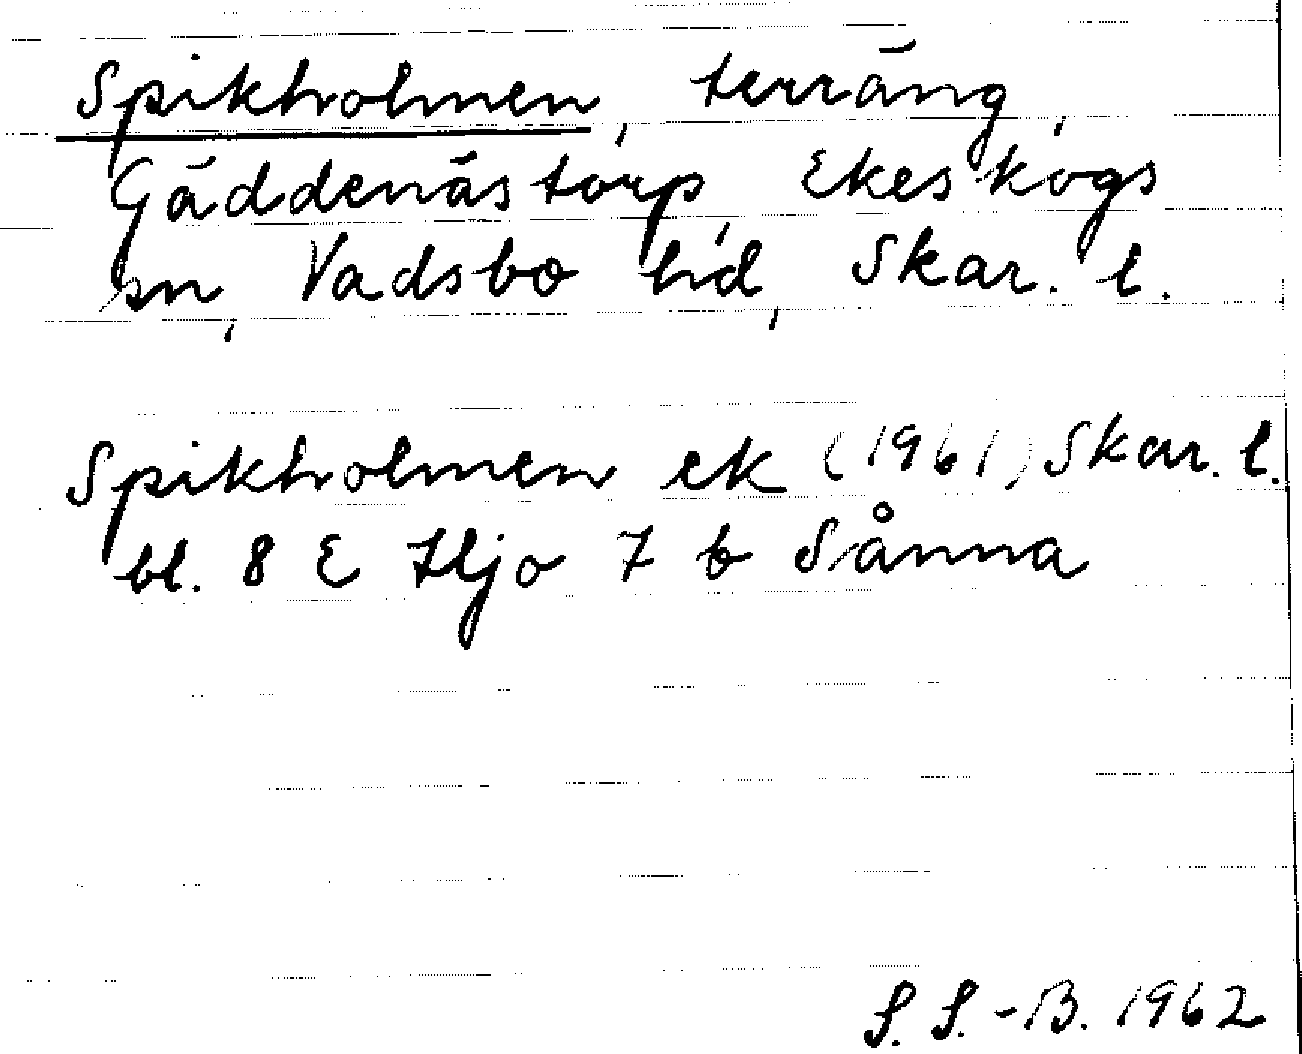 Spikholmen, terräng,
Gäddenästorp, Ekeskogs
sn, Vadsbo hd, Skar. l.
Spikholmen ek (1961) Skar. l.
bl. 8 E Hjo 7 b Sånna
S. S.-B. 1962